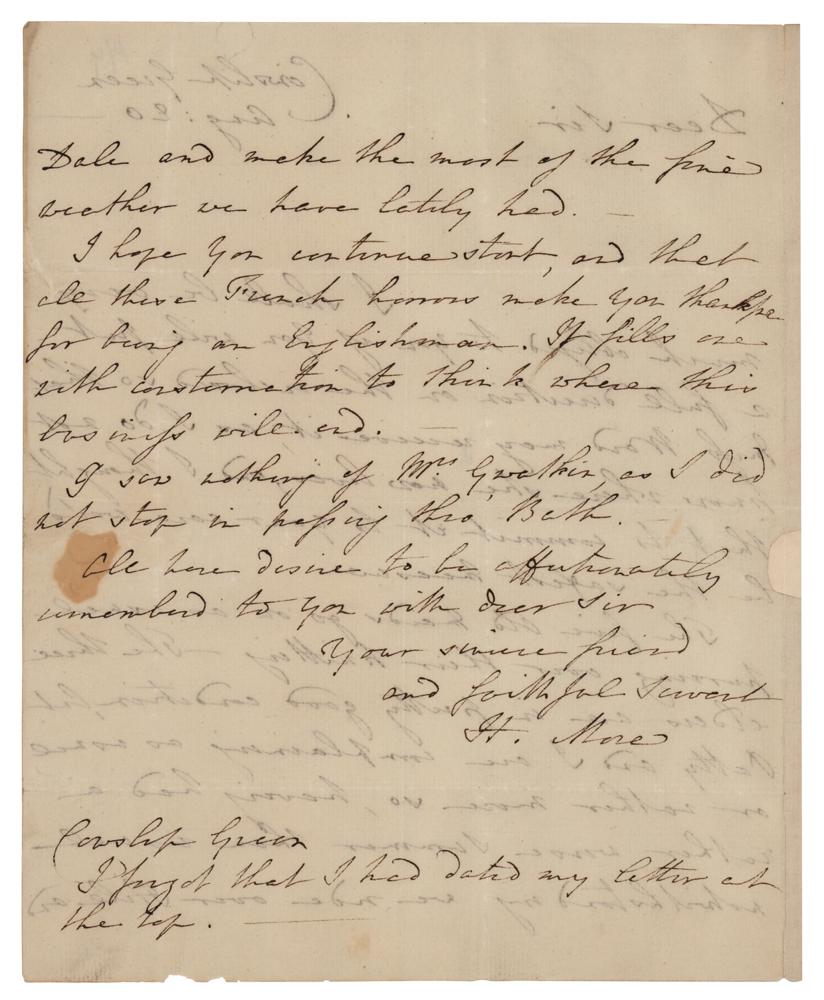 Dale and make the most of the fine
weather we have lately had. —
I hope you continue stout, and that
all these French horrors make you thankful
for being an Englishman. It fills one
with consternation to think where this
business will end. —
I saw nothing of Mrs. Gwatkin, as I did
not stop in passing thro' Bath. —
All here desire to be affectionately
rememberd to you, with dear Sir
Your sincere friend
and faithful Servant
H. More
Cowslip Green
I forgot that I had dated my letter at
the top. —